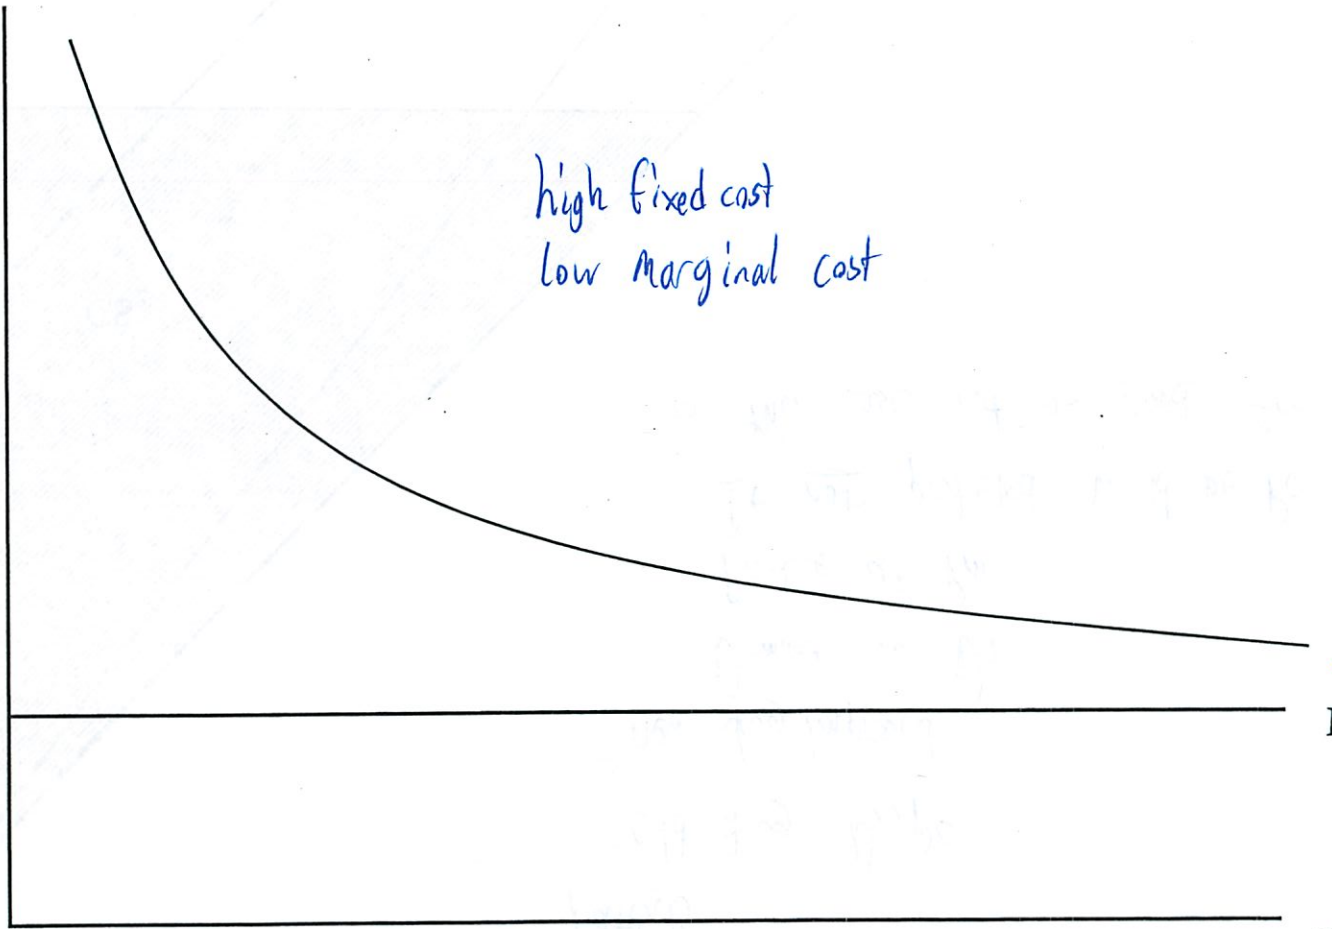 high fixed cost
low marginal cost